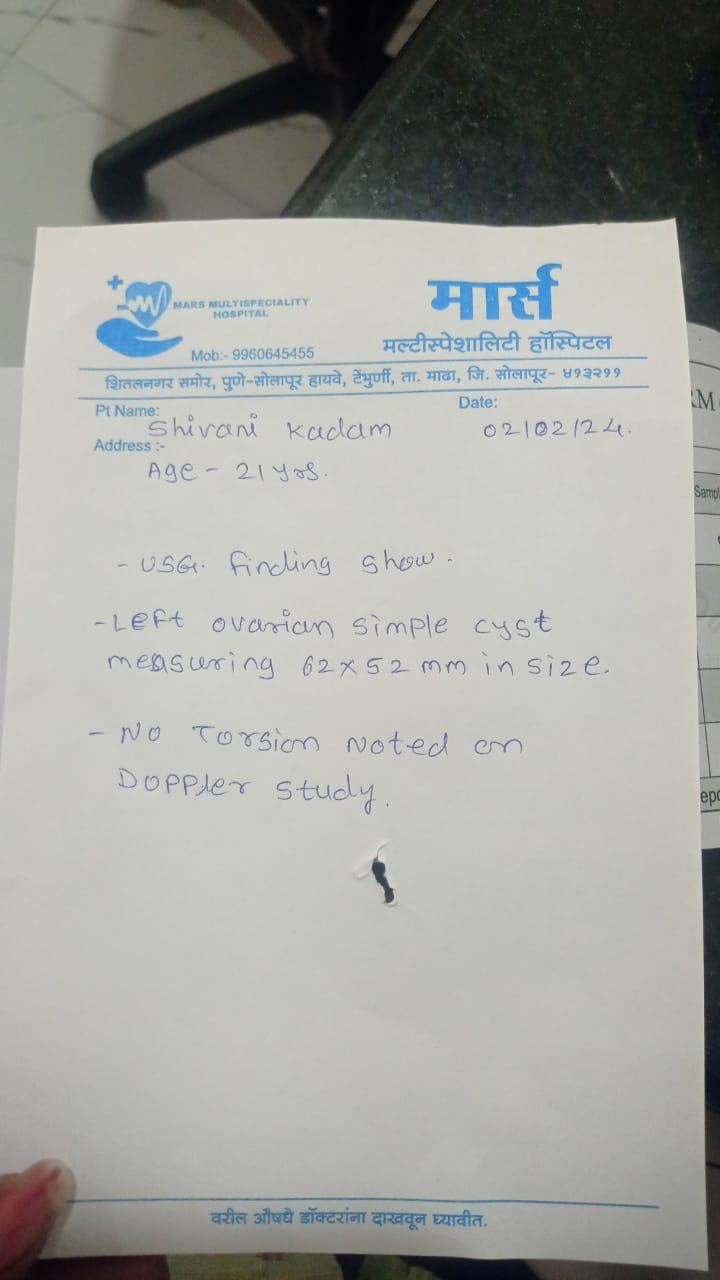 MARS MULTISPECIALITY
HOSPITAL
Mob:- 9960645455
मार्स
मल्टीस्पेशालिटी हॉस्पिटल
शितलनगर समोर, पुणे-सोलापूर हायवे, टेंभुर्णी, ता. माढा, जि. सोलापूर- ४१३२११
Pt Name: Shivani Kadam
Date: 02/02/24.
Address :-
Age - 21 yrs.
- USG. finding show.
- Left ovarian simple cyst
measuring 62 x 52 mm in size.
- No Torsion Noted on
Doppler study.
वरील औषधे डॉक्टरांना दाखवून घ्यावीत.